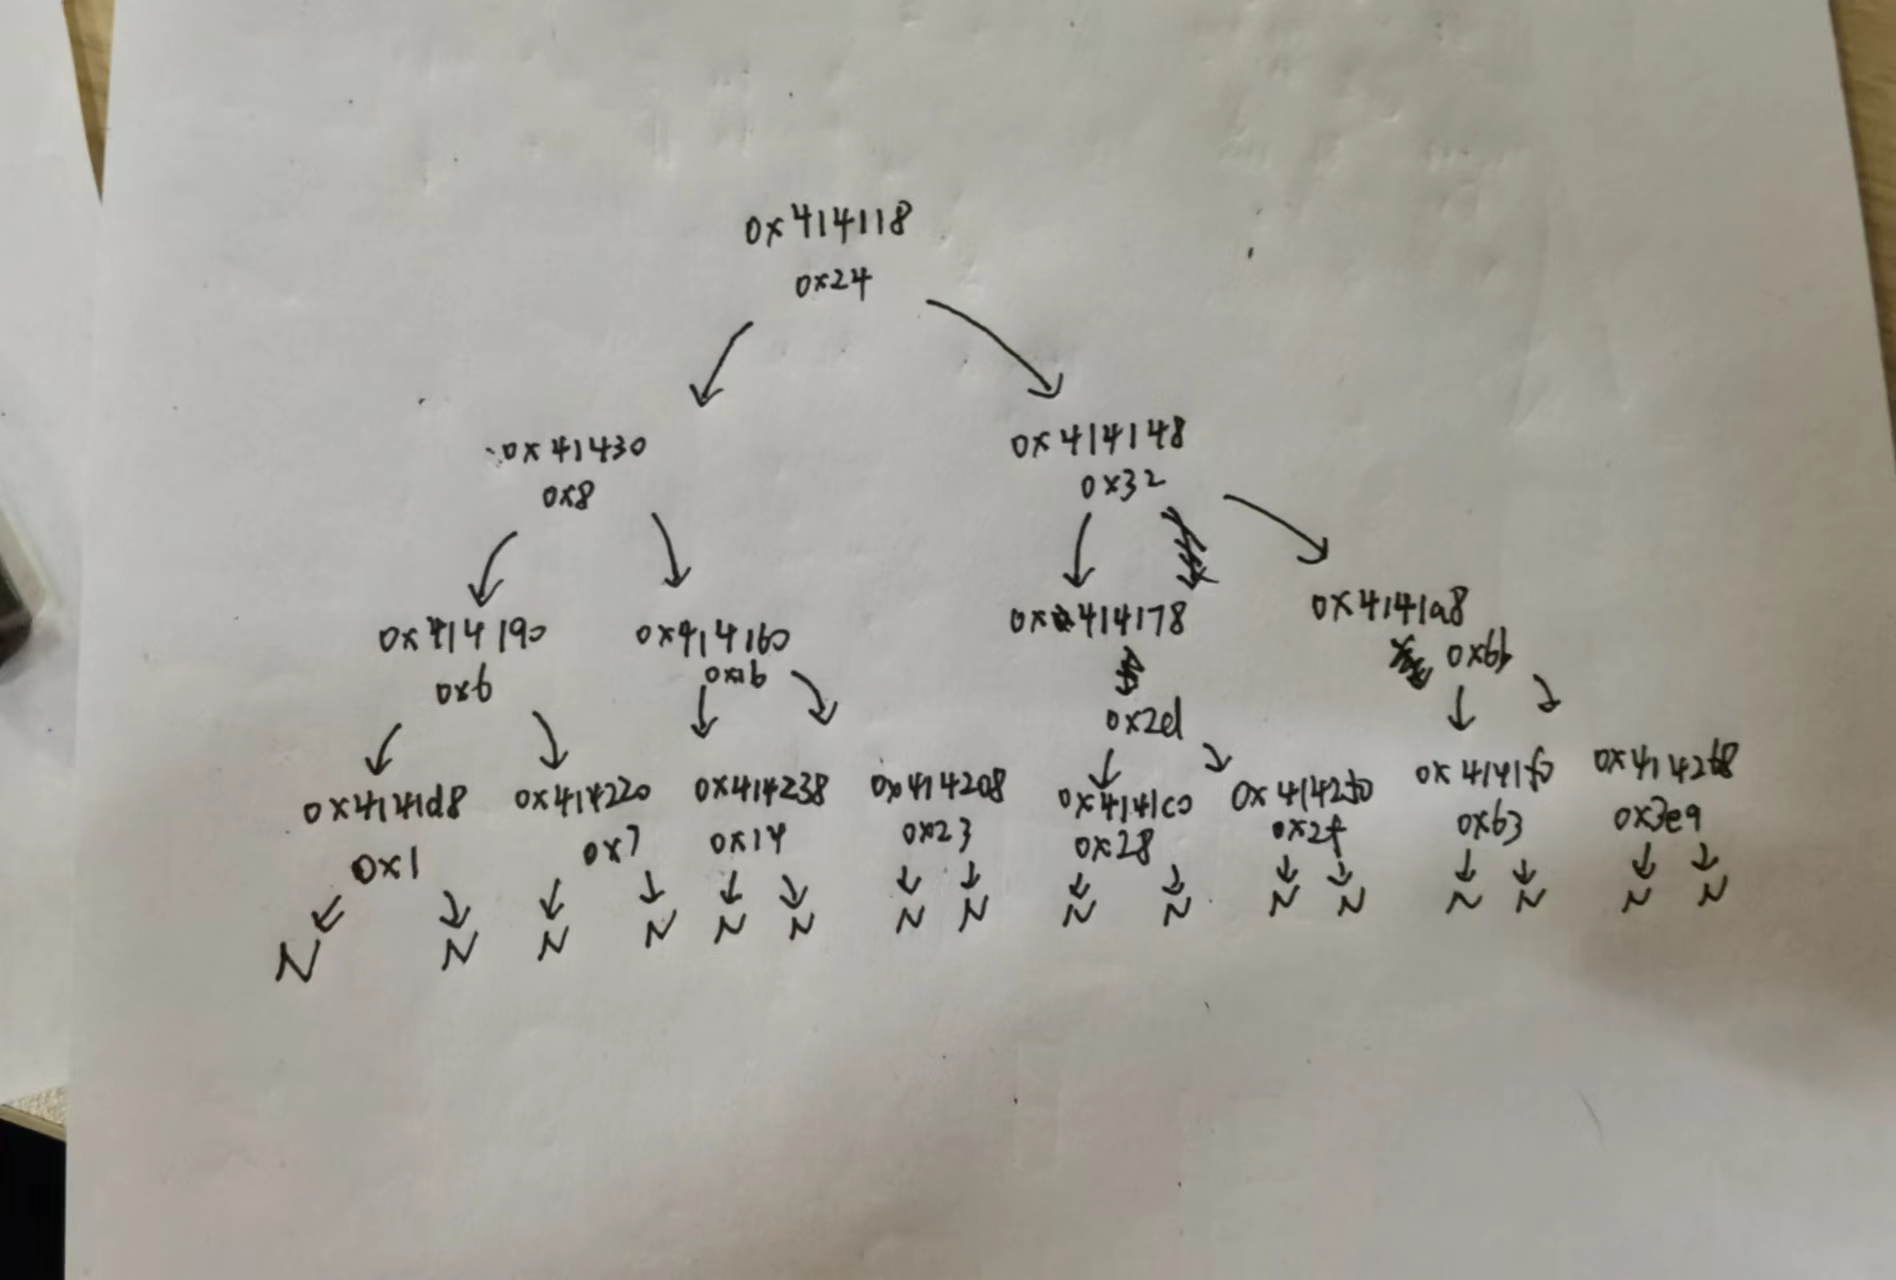 0x414118
0x24
0x41430
0x8
0x414148
0x32
0x414190
0x6
0x414160
0x16
0x414178
0x2d
0x4141a8
0x6b
0x4141d8
0x1
0x414220
0x7
0x414238
0x14
0x414208
0x23
0x4141c0
0x28
0x4142f0
0x2f
0x4141f0
0x63
0x3e9
N N N N N N N N N N N N N N N N